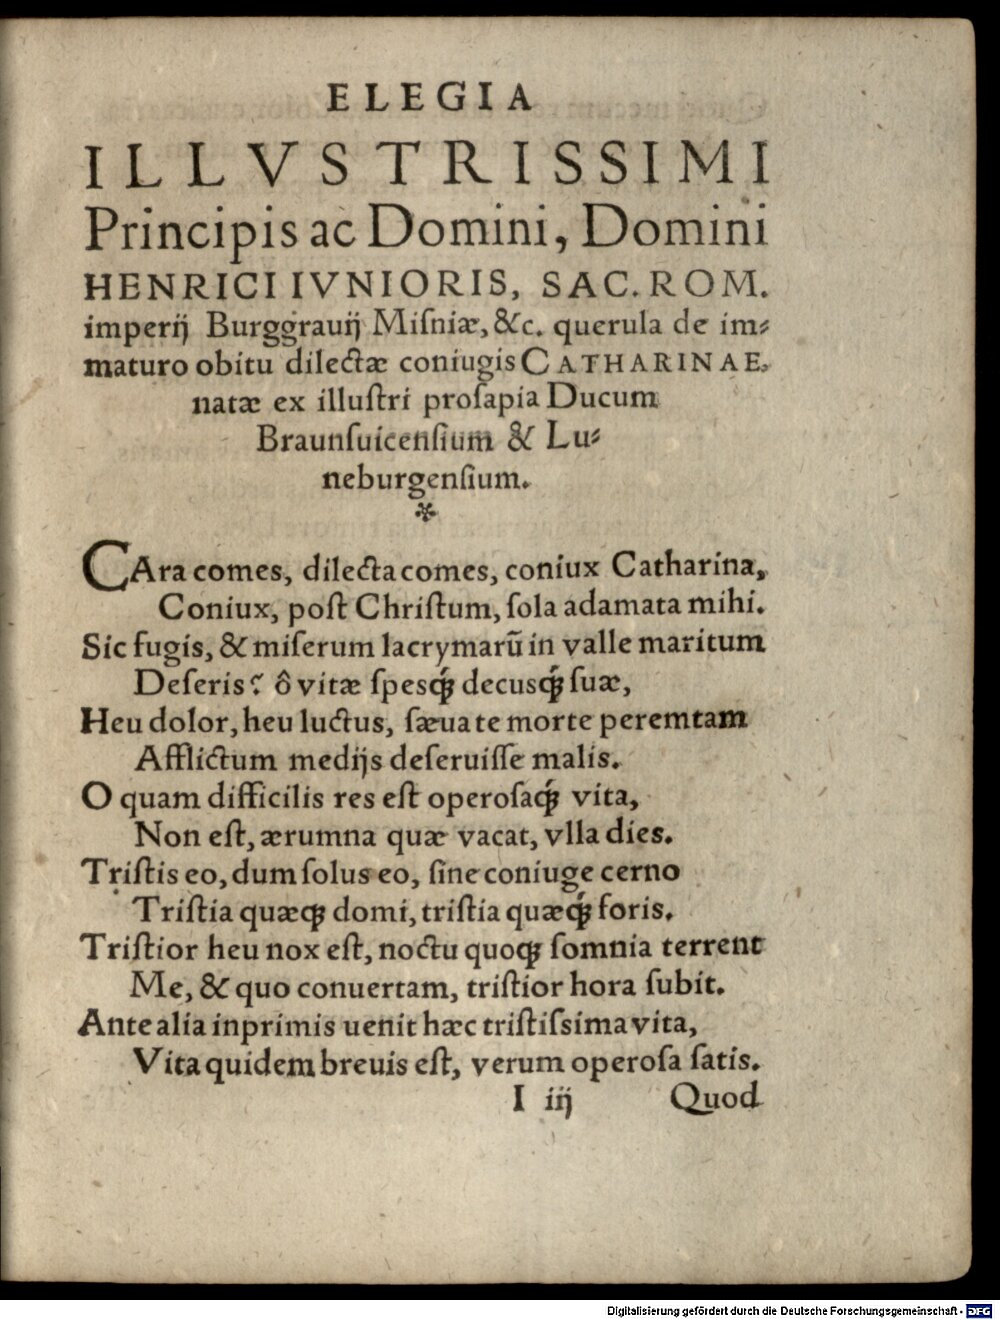 ELEGIA
ILLVSTRISSIMI
Principis ac Domini, Domini
HENRICI IVNIORIS, SAC. ROM.
imperĳ Burggrauĳ Miſniæ, &c. querula de im⸗
maturo obitu dilectæ coniugis CATHARINAE,
natæ ex illuſtri proſapia Ducum
Braunſuicenſium & Lu⸗
neburgenſium.
*
CAra comes, dilecta comes, coniux Catharina,
Coniux, poſt Chriſtum, ſola adamata mihi.
Sic fugis, & miſerum lacrymarũ in valle maritum
Deſeris? ô vitæ ſpesꝗ́ꝫ decusꝗ́ꝫ ſuæ,
Heu dolor, heu luctus, ſæua te morte peremtam
Afflictum medĳs deſeruiſſe malis.
O quam difficilis res eſt operoſaꝗ́ꝫ vita,
Non eſt, ærumna quæ vacat, vlla dies.
Triſtis eo, dum ſolus eo, ſine coniuge cerno
Triſtia quæꝗꝫ domi, triſtia quæꝗ́ꝫ foris.
Triſtior heu nox eſt, noctu quoꝗꝫ ſomnia terrent
Me, & quo conuertam, triſtior hora ſubit.
Ante alia inprimis uenit hæc triſtiſsima vita,
Vita quidem breuis eſt, verum operoſa ſatis.
I iĳ Quod
Digitalisierung gefördert durch die Deutsche Forschungsgemeinschaft - DFG